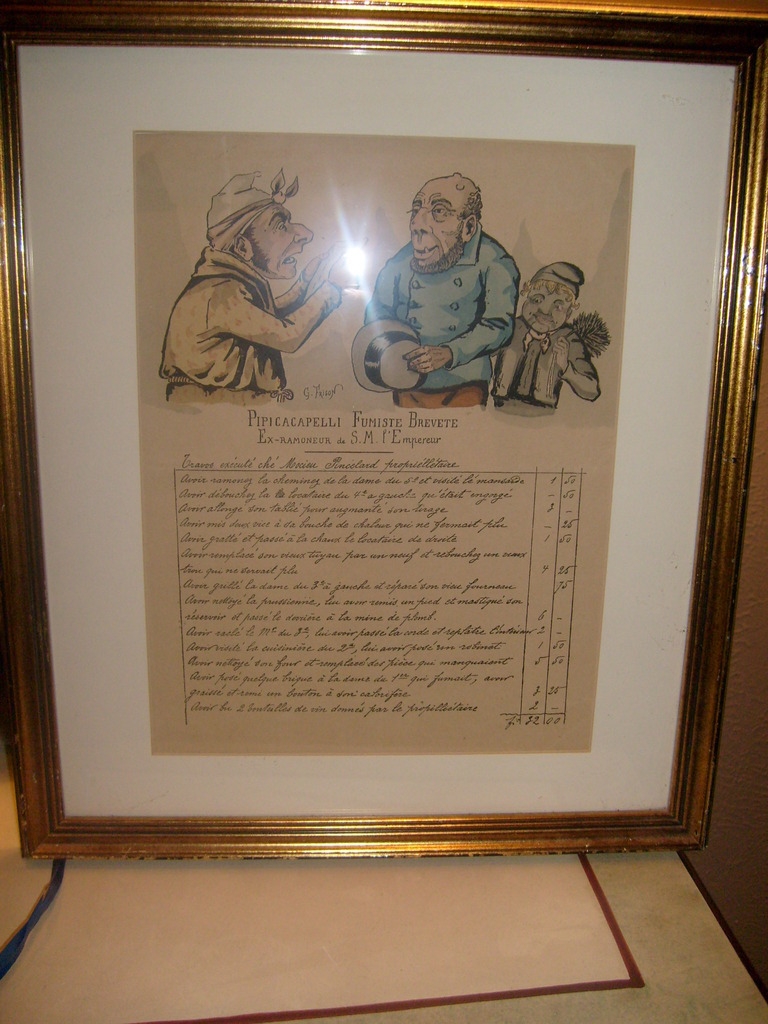 G. Frison
PIPICACAPELLI FUMISTE BREVETE
EX-RAMONEUR de S.M. l'Empereur
Travos exécuté ché Mocieu Pincelard propriellétaire
Avoir ramonez la cheminez de la dame du 5e et visité la mansarde 1 50
Avoir débouchez la locataire du 4e a gauche qu'était engorgé - 50
Avoir allongé son tablié pour augmanté son tirage 2 -
Avoir mis deux vice à sa bouche de chaleur qui ne fermait plu - 25
Avoir gratté et passé à la chaux le locataire de droite 1 50
Avoir remplacé son vieux tuyau par un neuf et rebouchez un vieux
trou qui ne servait plu 4 25
Avoir grillé la dame du 3e à gauche et réparé son vieu fourneau 75
Avoir nettoyé la prussienne, lui avoir remis un pied et mastiqué son
réservoir et passé le derrière à la mine de plomb. 6 -
Avoir raclé le Mr du 3e, lui avoir passé la corde et replâtré l'intérieur 2 -
Avoir visité la cuisinière du 2e, lui avoir posé son robinet 1 50
Avoir nétoyé son four et remplacé des pièce qui manquaient 5 50
Avoir posé quelque brique à la dame du 1er qui fumait, avoir
graissé et remi un bouton à son calorifère 3 25
Avoir bu 2 boutalles de vin donnés par le propelliétaire 2 -
fr. 32 00